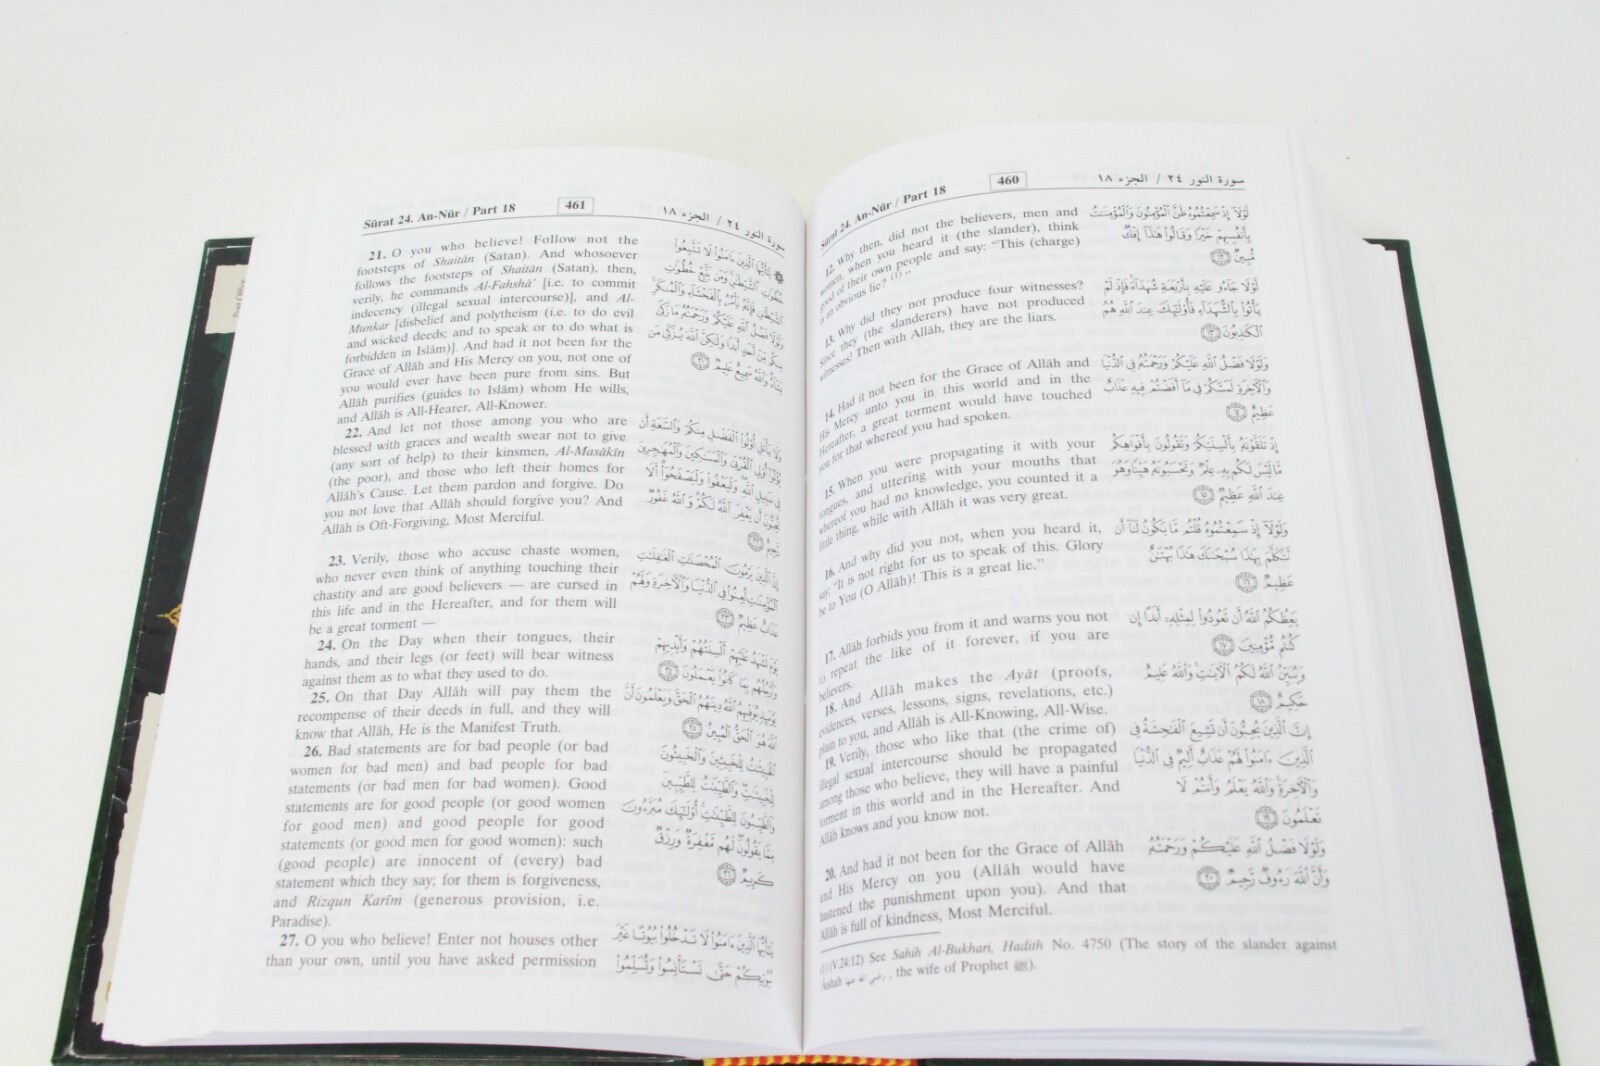 Sūrat 24. An-Nūr / Part 18
460
سورة النور ٢٤ / الجزء ١٨
12. Why then, did not the believers, men and
women, when you heard it (the slander), think
good of their own people and say: "This (charge)
is an obvious lie? (1) "
13. Why did they not produce four witnesses?
Since they (the slanderers) have not produced
witnesses! Then with Allāh, they are the liars.
14. Had it not been for the Grace of Allāh and
His Mercy unto you in this world and in the
Hereafter, a great torment would have touched
you for that whereof you had spoken.
15. When you were propagating it with your
tongues, and uttering with your mouths that
whereof you had no knowledge, you counted it a
little thing, while with Allāh it was very great.
16. And why did you not, when you heard it,
say: "It is not right for us to speak of this. Glory
be to You (O Allāh)! This is a great lie."
17. Allāh forbids you from it and warns you not
to repeat the like of it forever, if you are
believers.
18. And Allāh makes the Ayāt (proofs,
evidences, verses, lessons, signs, revelations, etc.)
plain to you, and Allāh is All-Knowing, All-Wise.
19. Verily, those who like that (the crime of)
illegal sexual intercourse should be propagated
among those who believe, they will have a painful
torment in this world and in the Hereafter. And
Allāh knows and you know not.
20. And had it not been for the Grace of Allāh
and His Mercy on you (Allāh would have
hastened the punishment upon you). And that
Allāh is full of kindness, Most Merciful.
لَوْلَا إِذْ سَمِعْتُمُوهُ ظَنَّ الْمُؤْمِنُونَ وَالْمُؤْمِنَاتُ
بِأَنفُسِهِمْ خَيْرًا وَقَالُوا هَذَا إِفْكٌ
مُّبِينٌ ١٢
لَوْلَا جَاءُو عَلَيْهِ بِأَرْبَعَةِ شُهَدَاءَ فَإِذْ لَمْ
يَأْتُوا بِالشُّهَدَاءِ فَأُولَئِكَ عِندَ اللَّهِ هُمُ
الْكَاذِبُونَ ١٣
وَلَوْلَا فَضْلُ اللَّهِ عَلَيْكُمْ وَرَحْمَتُهُ فِي الدُّنْيَا
وَالْآخِرَةِ لَمَسَّكُمْ فِي مَا أَفَضْتُمْ فِيهِ عَذَابٌ
عَظِيمٌ ١٤
إِذْ تَلَقَّوْنَهُ بِأَلْسِنَتِكُمْ وَتَقُولُونَ بِأَفْوَاهِكُم
مَّا لَيْسَ لَكُم بِهِ عِلْمٌ وَتَحْسَبُونَهُ هَيِّنًا وَهُوَ
عِندَ اللَّهِ عَظِيمٌ ١٥
وَلَوْلَا إِذْ سَمِعْتُمُوهُ قُلْتُم مَّا يَكُونُ لَنَا أَن
نَّتَكَلَّمَ بِهَذَا سُبْحَانَكَ هَذَا بُهْتَانٌ
عَظِيمٌ ١٦
يَعِظُكُمُ اللَّهُ أَن تَعُودُوا لِمِثْلِهِ أَبَدًا إِن
كُنتُم مُّؤْمِنِينَ ١٧
وَيُبَيِّنُ اللَّهُ لَكُمُ الْآيَاتِ وَاللَّهُ عَلِيمٌ
حَكِيمٌ ١٨
إِنَّ الَّذِينَ يُحِبُّونَ أَن تَشِيعَ الْفَاحِشَةُ فِي
الَّذِينَ ءَامَنُوا لَهُمْ عَذَابٌ أَلِيمٌ فِي الدُّنْيَا
وَالْآخِرَةِ وَاللَّهُ يَعْلَمُ وَأَنتُمْ لَا
تَعْلَمُونَ ١٩
وَلَوْلَا فَضْلُ اللَّهِ عَلَيْكُمْ وَرَحْمَتُهُ
وَأَنَّ اللَّهَ رَءُوفٌ رَّحِيمٌ ٢٠
(1) (V.24:12) See Sahih Al-Bukhari, Hadith No. 4750 (The story of the slander against
'Aishah رضي الله عنها, the wife of Prophet ﷺ).
Sūrat 24. An-Nūr / Part 18
461
سورة النور ٢٤ / الجزء ١٨
21. O you who believe! Follow not the
footsteps of Shaitān (Satan). And whosoever
follows the footsteps of Shaitān (Satan), then,
verily, he commands Al-Fahshā' [i.e. to commit
indecency (illegal sexual intercourse)], and Al-
Munkar [disbelief and polytheism (i.e. to do evil
and wicked deeds; and to speak or to do what is
forbidden in Islām)]. And had it not been for the
Grace of Allāh and His Mercy on you, not one of
you would ever have been pure from sins. But
Allāh purifies (guides to Islām) whom He wills,
and Allāh is All-Hearer, All-Knower.
22. And let not those among you who are
blessed with graces and wealth swear not to give
(any sort of help) to their kinsmen, Al-Masākīn
(the poor), and those who left their homes for
Allāh's Cause. Let them pardon and forgive. Do
you not love that Allāh should forgive you? And
Allāh is Oft-Forgiving, Most Merciful.
23. Verily, those who accuse chaste women,
who never even think of anything touching their
chastity and are good believers — are cursed in
this life and in the Hereafter, and for them will
be a great torment —
24. On the Day when their tongues, their
hands, and their legs (or feet) will bear witness
against them as to what they used to do.
25. On that Day Allāh will pay them the
recompense of their deeds in full, and they will
know that Allāh, He is the Manifest Truth.
26. Bad statements are for bad people (or bad
women for bad men) and bad people for bad
statements (or bad men for bad women). Good
statements are for good people (or good women
for good men) and good people for good
statements (or good men for good women): such
(good people) are innocent of (every) bad
statement which they say; for them is forgiveness,
and Rizqun Karīm (generous provision, i.e.
Paradise).
27. O you who believe! Enter not houses other
than your own, until you have asked permission
يَا أَيُّهَا الَّذِينَ ءَامَنُوا لَا تَتَّبِعُوا
خُطُوَاتِ الشَّيْطَانِ وَمَن يَتَّبِعْ خُطُوَاتِ
الشَّيْطَانِ فَإِنَّهُ يَأْمُرُ بِالْفَحْشَاءِ وَالْمُنكَرِ
وَلَوْلَا فَضْلُ اللَّهِ عَلَيْكُمْ وَرَحْمَتُهُ مَا زَكَى
مِنكُم مِّنْ أَحَدٍ أَبَدًا وَلَكِنَّ اللَّهَ يُزَكِّي مَن
يَشَاءُ وَاللَّهُ سَمِيعٌ عَلِيمٌ ٢١
وَلَا يَأْتَلِ أُولُوا الْفَضْلِ مِنكُمْ وَالسَّعَةِ أَن
يُؤْتُوا أُولِي الْقُرْبَى وَالْمَسَاكِينَ وَالْمُهَاجِرِينَ
فِي سَبِيلِ اللَّهِ وَلْيَعْفُوا وَلْيَصْفَحُوا أَلَا
تُحِبُّونَ أَن يَغْفِرَ اللَّهُ لَكُمْ وَاللَّهُ غَفُورٌ
رَّحِيمٌ ٢٢
إِنَّ الَّذِينَ يَرْمُونَ الْمُحْصَنَاتِ الْغَافِلَاتِ
الْمُؤْمِنَاتِ لُعِنُوا فِي الدُّنْيَا وَالْآخِرَةِ وَلَهُمْ
عَذَابٌ عَظِيمٌ ٢٣
يَوْمَ تَشْهَدُ عَلَيْهِمْ أَلْسِنَتُهُمْ وَأَيْدِيهِمْ
وَأَرْجُلُهُم بِمَا كَانُوا يَعْمَلُونَ ٢٤
يَوْمَئِذٍ يُوَفِّيهِمُ اللَّهُ دِينَهُمُ الْحَقَّ وَيَعْلَمُونَ أَنَّ
اللَّهَ هُوَ الْحَقُّ الْمُبِينُ ٢٥
الْخَبِيثَاتُ لِلْخَبِيثِينَ وَالْخَبِيثُونَ
لِلْخَبِيثَاتِ وَالطَّيِّبَاتُ لِلطَّيِّبِينَ
وَالطَّيِّبُونَ لِلطَّيِّبَاتِ أُولَئِكَ مُبَرَّءُونَ
مِمَّا يَقُولُونَ لَهُم مَّغْفِرَةٌ وَرِزْقٌ
كَرِيمٌ ٢٦
يَا أَيُّهَا الَّذِينَ ءَامَنُوا لَا تَدْخُلُوا بُيُوتًا غَيْرَ
بُيُوتِكُمْ حَتَّى تَسْتَأْنِسُوا وَتُسَلِّمُوا